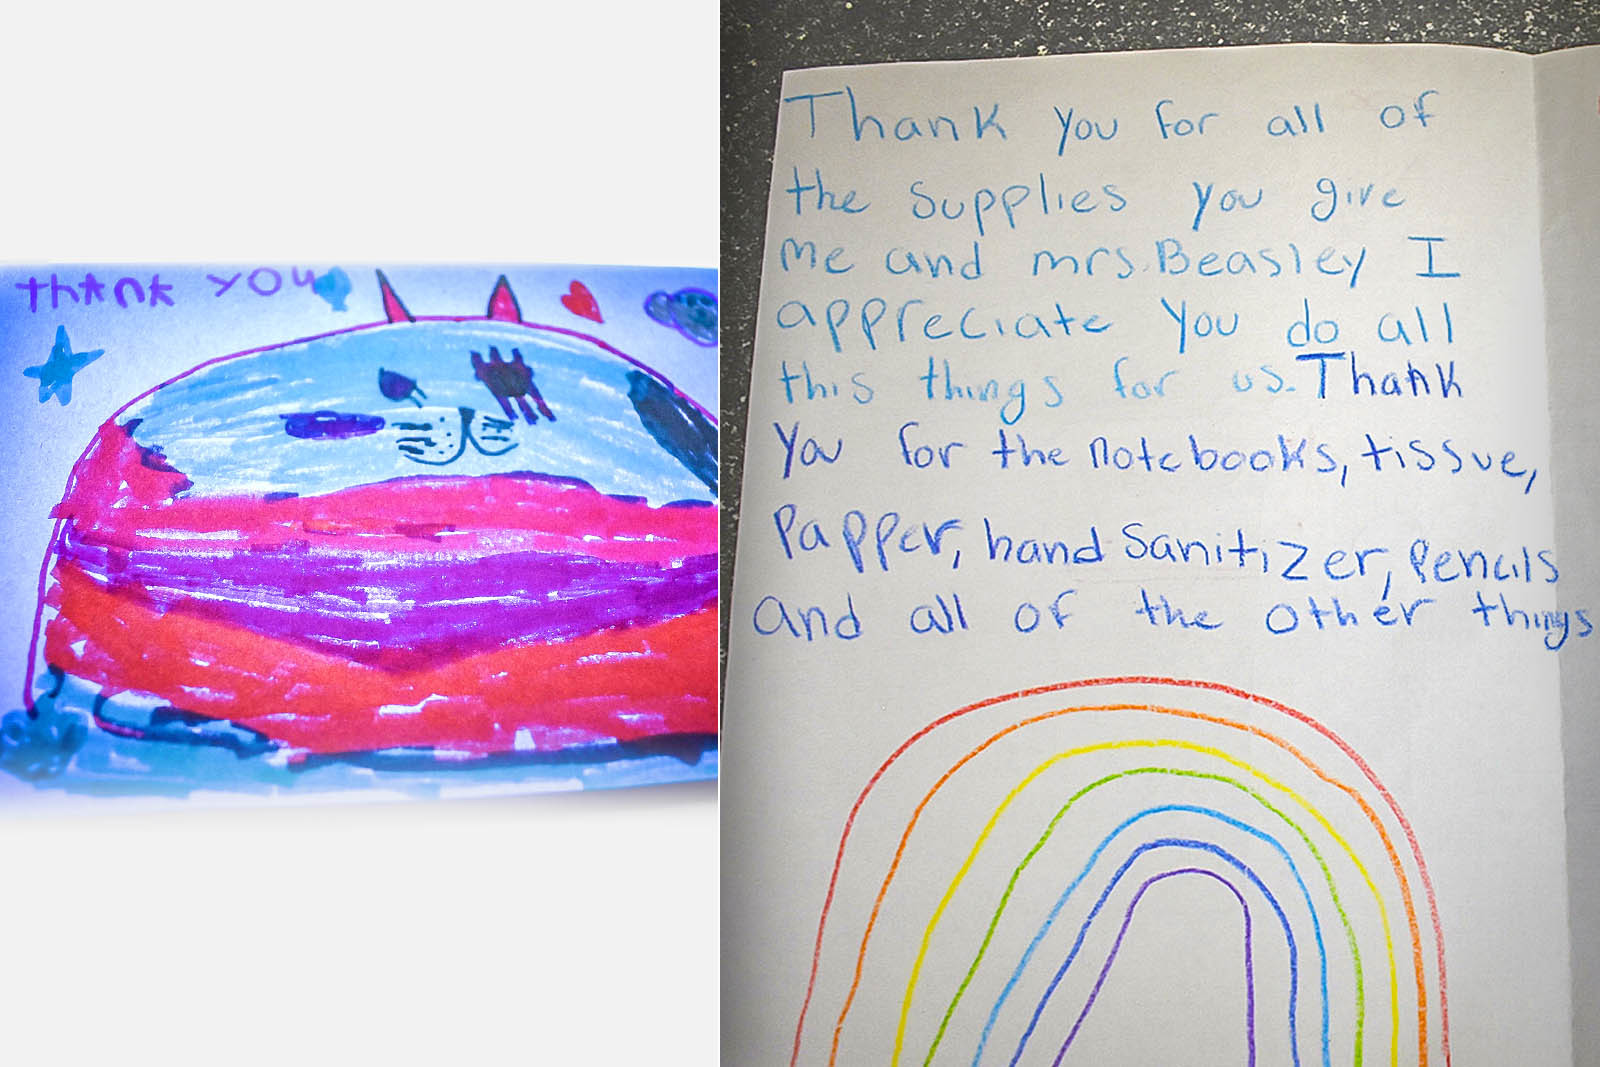 thank you
Thank you for all of
the supplies you give
Me and mrs. Beasley I
appreciate you do all
this things for us. Thank
you for the notebooks, tissue,
Papper, hand Sanitizer, Pencils
and all of the other things